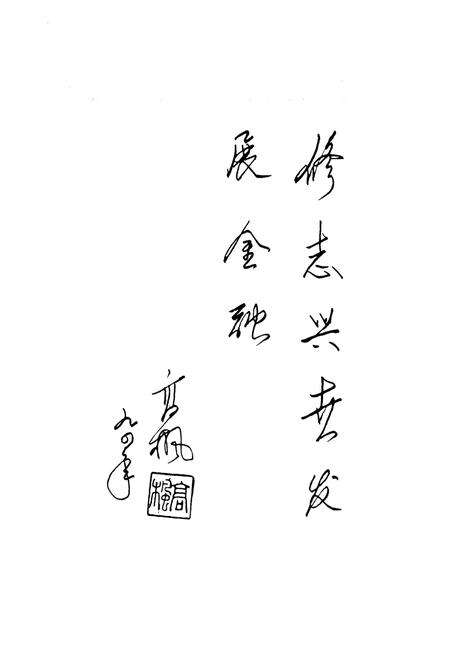 修志兴黄发
展金融
高枫
九四年
高楓